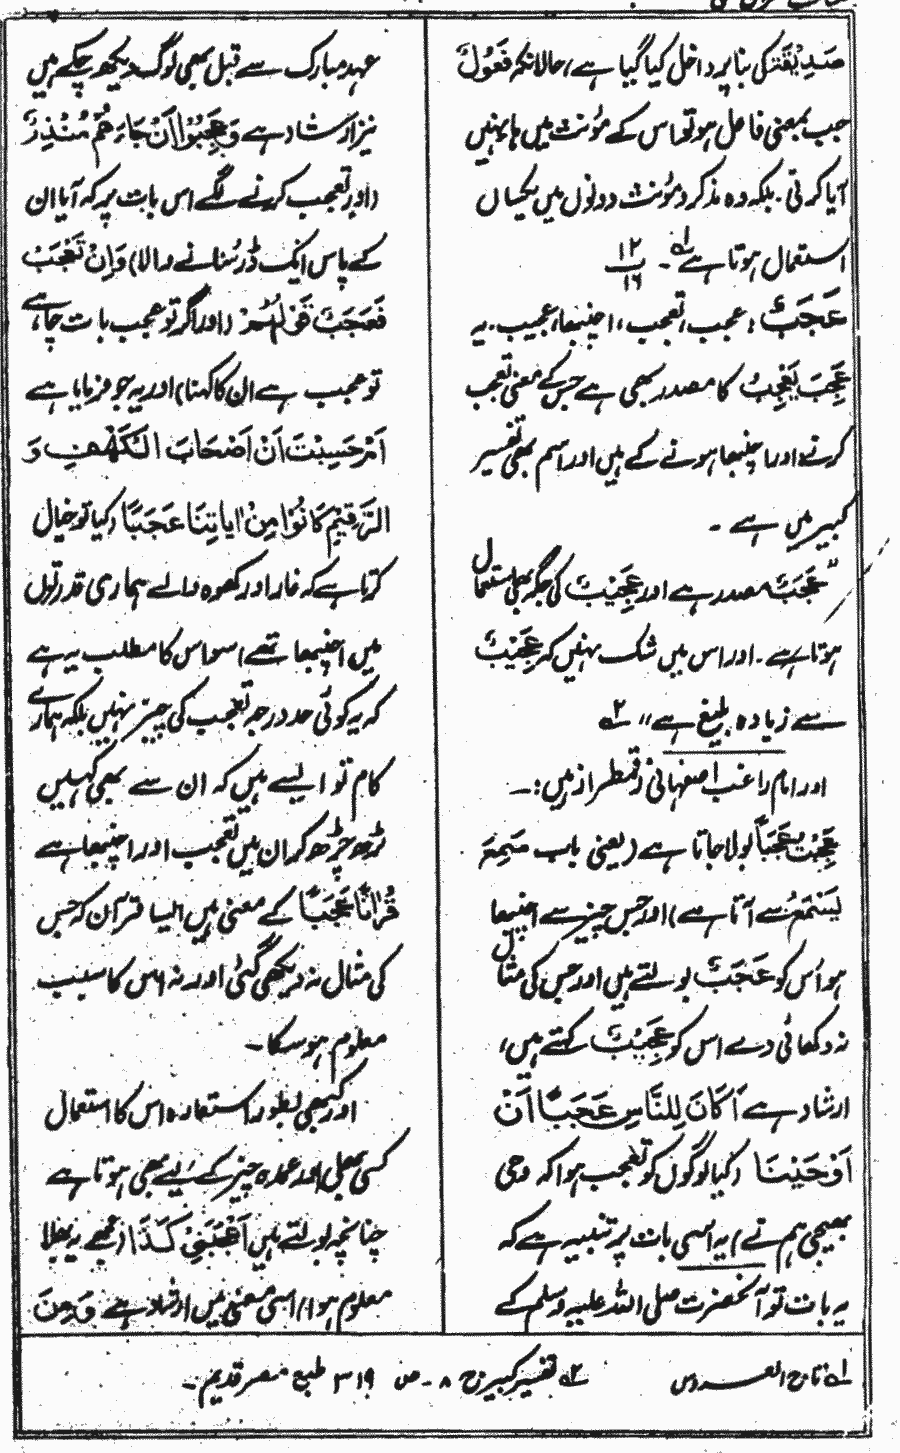 صَدِیْقَۃٌ کی بنا پر داخل کیا گیا ہے، حالانکہ فَعُوْلٌ
جب بمعنی فاعل ہو تو اس کے مؤنث میں ہا نہیں
آیا کرتی، بلکہ وہ مذکر و مؤنث دونوں میں یکساں
استعمال ہوتا ہے لہ۔ ۱۲/۱۶
عَجَبٌ: عجب، تعجب، اچنبھا، عجیب۔ یہ
عَجِبَ یَعْجَبُ کا مصدر بھی ہے جس کے معنی تعجب
کرنے اور اچنبھا ہونے کے ہیں اور اسم بھی تفسیر
کبیر میں ہے۔
"عَجَبٌ مصدر ہے اور عَجِیْبٌ کی جگہ بھی استعمال
ہوتا ہے۔ اور اس میں شک نہیں کہ عَجِیْبٌ
سے زیادہ بلیغ ہے" ۲ہ
اور امام راغب اصفہانی رقمطراز ہیں:۔
عَجِبْتُ عَجَبًا بولا جاتا ہے (یعنی باب سَمِعَ
یَسْمَعُ سے آتا ہے) اور جس چیز سے اچنبھا
ہو اُس کو عَجَبٌ بولتے ہیں اور جس کی مثال
نہ دکھائی دے اس کو عَجِیْبٌ کہتے ہیں،
ارشاد ہے اَکَانَ لِلنَّاسِ عَجَبًا اَنْ
اَوْحَیْنَا (کیا لوگوں کو تعجب ہوا کہ وحی
بھیجی ہم نے) یہ اسی بات پر تنبیہ ہے کہ
یہ بات تو آنحضرت صلی اللہ علیہ وسلم کے
عہد مبارک سے قبل بھی لوگ دیکھ چکے ہیں
نیز ارشاد ہے وَعَجِبُوْا اَنْ جَاءَهُمْ مُنْذِرٌ
(اور تعجب کرنے لگے اس بات پر کہ آیا ان
کے پاس ایک ڈر سُنانے والا) وَاِنْ تَعْجَبْ
فَعَجَبٌ قَوْلُهُمْ (اور اگر تو عجب بات چاہے،
تو عجب ہے ان کا کہنا) اور یہ جو فرمایا ہے
اَمْ حَسِبْتَ اَنَّ اَصْحَابَ الْكَهْفِ وَ
الرَّقِیْمِ كَانُوْا مِنْ اٰیَاتِنَا عَجَبًا (کیا تو خیال
کرتا ہے کہ غار اور کھوہ والے ہماری قدرتوں
میں اچنبھا تھے، سو اس کا مطلب یہ ہے
کہ یہ کوئی حد درجہ تعجب کی چیز نہیں بلکہ ہمارے
کام تو ایسے ہیں کہ ان سے بھی کہیں
بڑھ چڑھ کر ان میں تعجب اور اچنبھا ہے
قُرْاٰنًا عَجَبًا کے معنی ہیں ایسا قرآن کہ جس
کی مثال نہ دیکھی گئی اور نہ اس کا سبب
معلوم ہو سکا۔
اور کبھی بطور استعارہ اس کا استعمال
کسی بھلی اور عمدہ چیز کے لیے بھی ہوتا ہے
چنانچہ بولتے ہیں اَعْجَبَنِیْ كَذَا (مجھے یہ بھلا
معلوم ہوا) اسی معنی میں ارشاد ہے وَمِنَ
لہ تاج العروس ۲ہ تفسیر کبیر ج ۸۔ ص ۳۱۹ طبع مصر قدیم۔